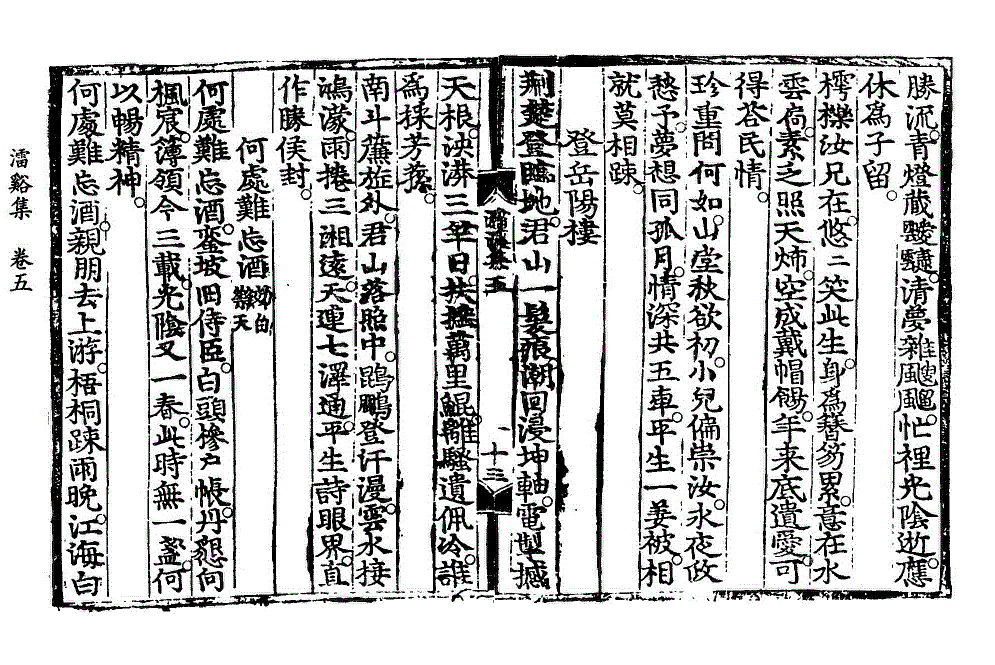 勝流青燈蔵騣驄清夢雜颸颸忙裡光陰逝應
休爲子留
樗櫟汝兄在悠〻笑此生身爲簪笏累意在水
雲荷素乏照天炳空成戴帽餳年来底遺愛可
得荅民情
珍重問何如山堂秋欲初小兒偏祟汝永夜政
愁予夢想同孤月情深共五車平生一姜被相
就莫相踈
登岳陽樓
荆楚登臨地君山一髮痕潮回漫坤軸電掣撼
天根泱漭三竿日扶揺萬里鯤離騷遺佩冷誰
爲採芳蓀
南斗簾旌外君山落照中鵾鵬登汗漫雲水接
鴻濛雨捲三湘遠天連七澤通平生詩眼界直
作勝侯封
何處難忘酒
何處難忘酒鑾坡旧侍臣白頭慘戸帳丹懇何
楓宸簿領今三載光陰又一春此時無一盞何
以暢精神
何處難忘酒親朋去上游梧桐踈雨晚江海白
十三
濡谿集 卷五